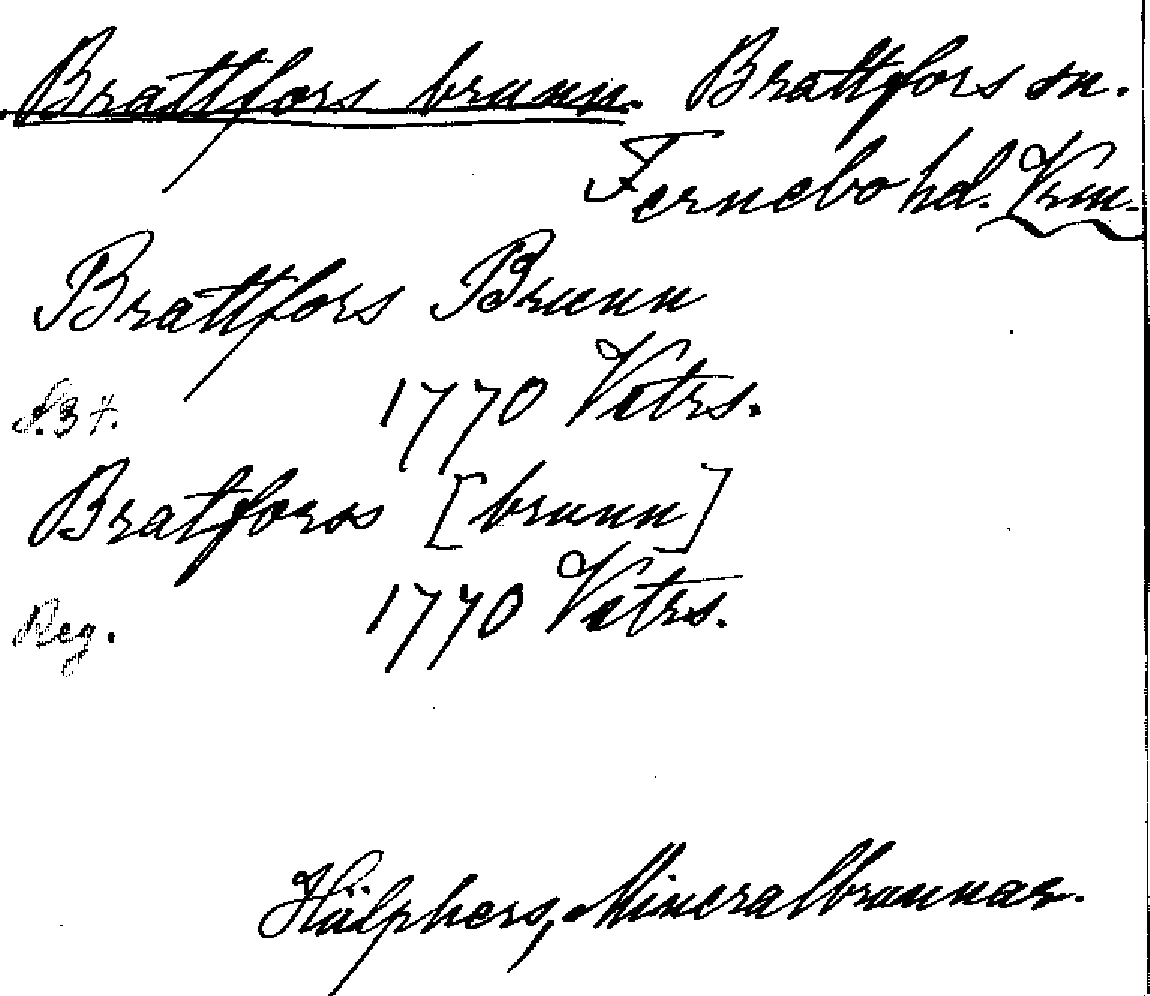 Brattfors brunn. Brattfors sn.
Fernebo hd. Vrm.
Brattfors Brunn
S. 34. 1770 Vttrs.
Bratfors [brunn]
Reg. 1770 Vttrs.
Hülphers, Mineralbrunnar.